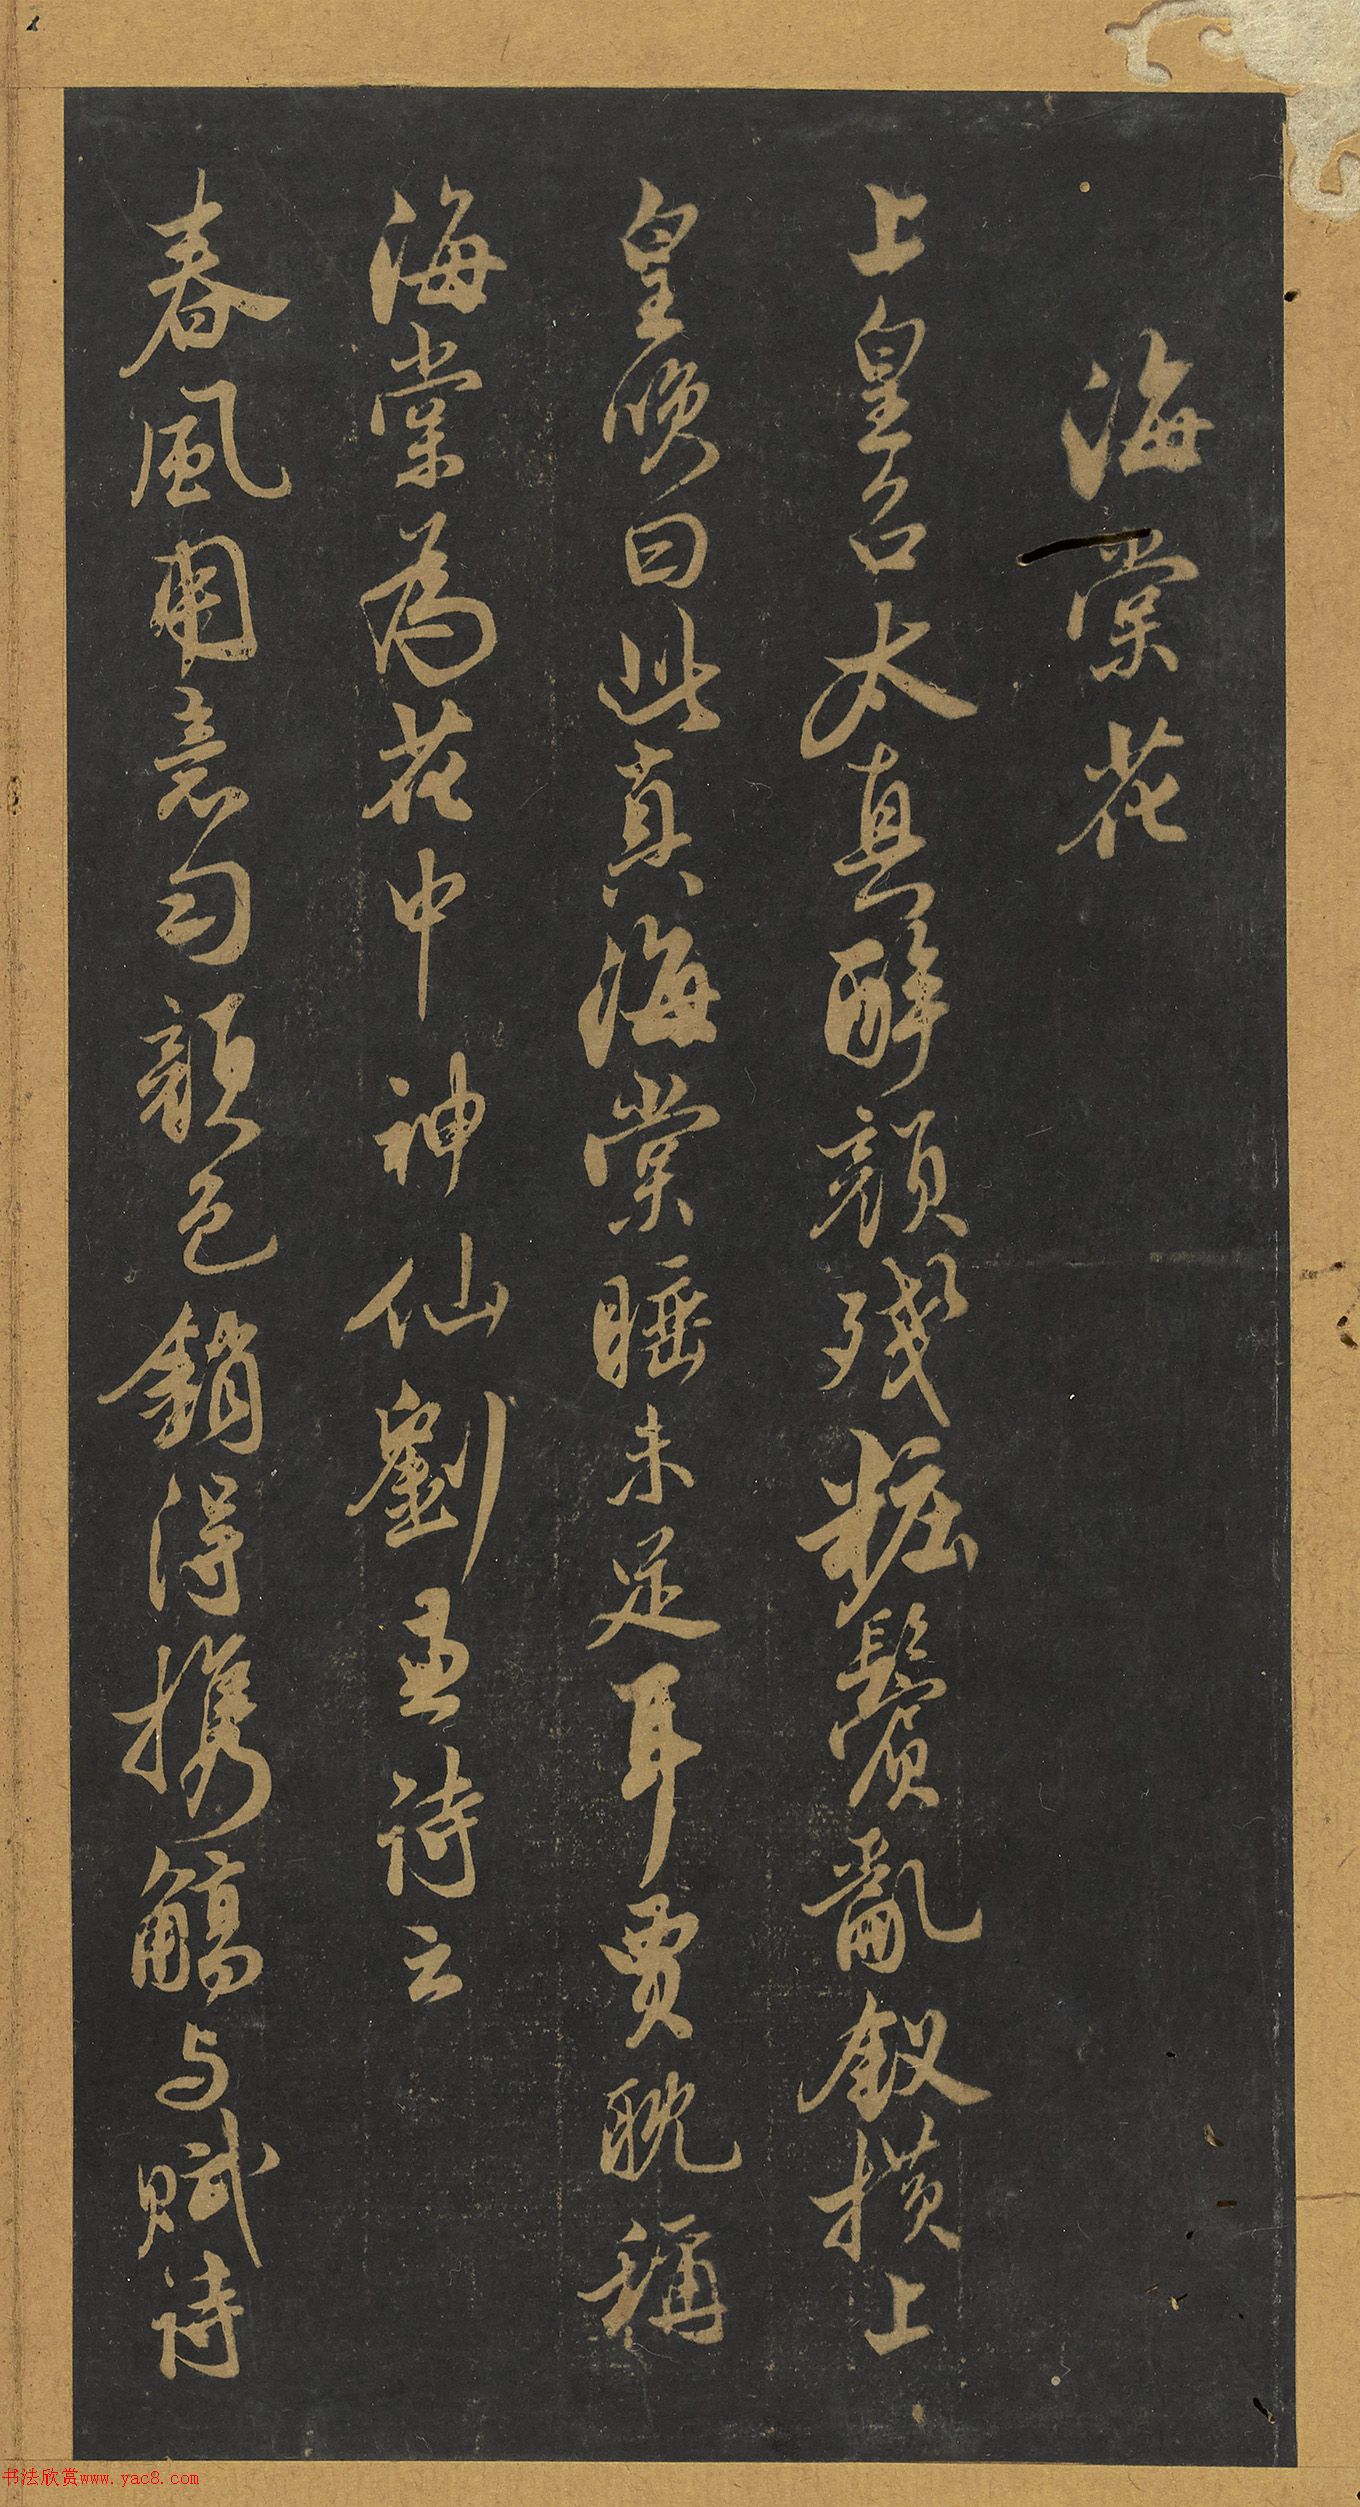 海棠花
上皇召太真醉顔殘粧鬢亂釵橫上
皇咲曰此真海棠睡未足耳賈耽稱
海棠為花中神仙劉孟詩云
春風用意匀顔色銷得携觴与賦詩
书法欣赏www.yac8.com